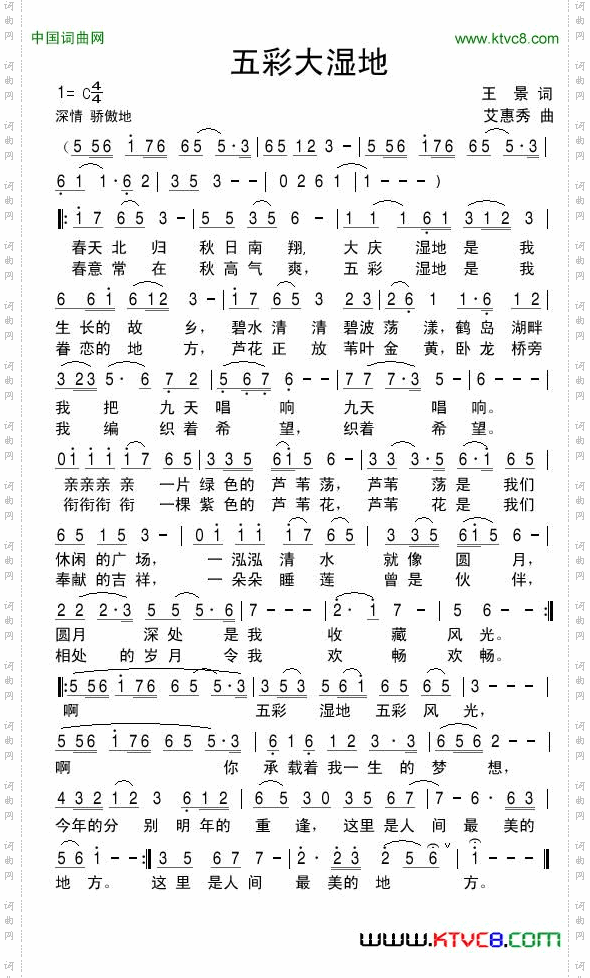 中国词曲网 www.ktvc8.com
五彩大湿地
1= C 4/4 王 景 词
深情 骄傲地 艾惠秀 曲
(5 56 1 76 65 5·3 | 65 12 3 - | 5 56 1 76 65 5·3 |
6 1 1·6 2 | 3 5 3 - - | 0 2 6 1 | 1 - - - )
‖: 1 7 6 5 3 - | 5 5 3 5 6 - | 1 1 1 6 1 | 3 1 2 3 |
春天 北 归 秋 日 南 翔, 大 庆 湿 地 是 我
春意 常 在 秋 高 气 爽, 五 彩 湿 地 是 我
6 6 1 6 12 3 - | 1 7 6 5 3 2 3 | 2 6 1 1·6 1 2 |
生 长 的 故 乡, 碧水 清 清 碧波 荡 漾,鹤 岛 湖畔
眷 恋 的 地 方, 芦花 正 放 苇叶 金 黄,卧 龙 桥旁
3 23 5· 6 7 2 | 5 6·7 6 - - | 7 7 7 7·3 5 | 6 - - - |
我 把 九 天 唱 响 九天 唱 响。
我 编 织 着 希 望, 织着 希 望。
01 1 1 1 76 5 | 3 35 6 5 6·5 3 | 3 3 3·5 6·1 6 5 |
亲亲亲 亲 一片 绿 色的 芦 苇荡, 芦苇 荡 是 我们
衔衔衔 衔 一棵 紫 色的 芦 苇花, 芦苇 花 是 我们
6 5 1 5 3 - | 0 1 1 1 1 7 6 5 | 3 35 6 15 6 - |
休闲 的 广 场, 一 泓泓 清 水 就 像 圆 月,
奉献 的 吉 祥, 一 朵朵 睡 莲 曾 是 伙 伴,
2 2 2·3 5 5 5·6 | 7 - - - | 2· 1 7 5 | 6 - - - :‖
圆月 深 处 是 我 收 藏 风 光。
相处 的 岁 月 令 我 欢 畅 欢 畅。
‖: 5 56 1 76 6 5 5·3 | 3 53 5 61 6 5 6 5 | 3 - - - |
啊 五彩 湿地 五彩 风 光,
5 56 1·7 65 5·3 | 6 16 1 2 1 2 3·3 | 6 56 2 - |
啊 你 承 载着 我一 生 的 梦 想,
4 32 1 2 3 6 12 | 6 5 3 0 3 5 6 7 | 7 - 6· 6 3 |
今年的 分 别 明 年 的 重 逢, 这里 是人 间 最 美的
5 6 1 - - :‖ 3 5 6 7 7 - | 2· 2 3 2 5 6 ∨ | 1 - - - ‖
地 方。 这 里 是人 间 最 美的 地 方。
www.KTVC8.com